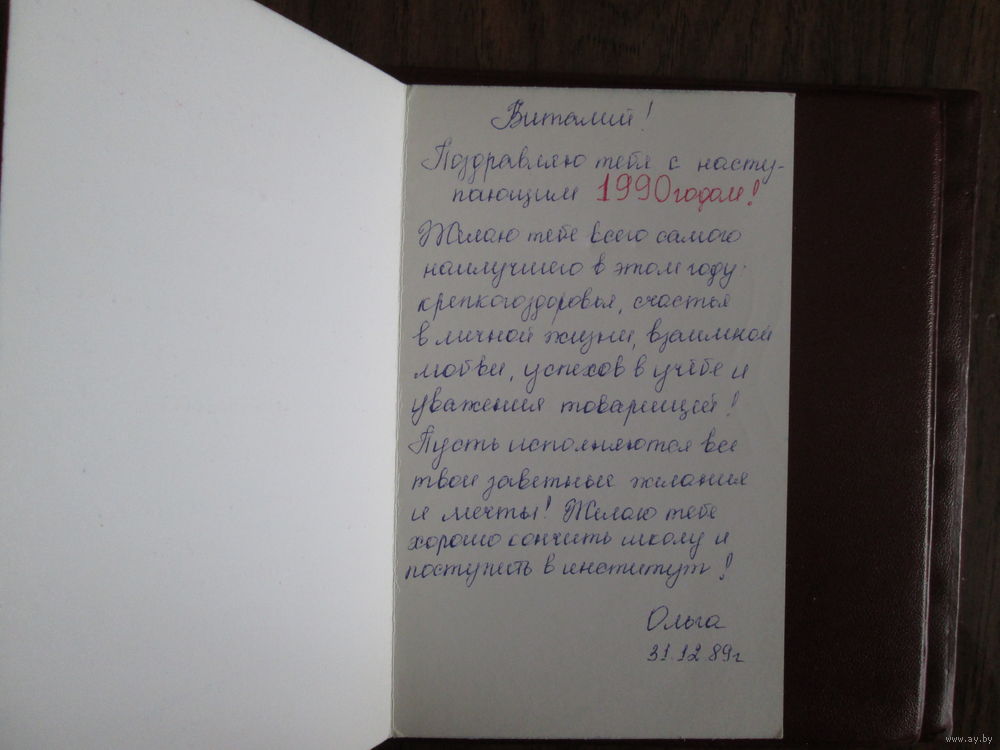 Виталий!
Поздравляю тебя с насту-
пающим 1990 годом!
Желаю тебе всего самого
наилучшего в этом году:
крепкого здоровья, счастья
в личной жизни, взаимной
любви, успехов в учёбе и
уважения товарищей!
Пусть исполняются все
твои заветные желания
и мечты! Желаю тебе
хорошо кончить школу и
поступить в институт!
Ольга
31.12.89г
www.ay.by